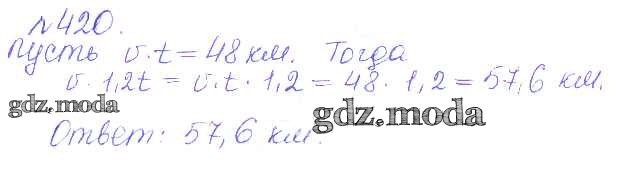 №420.
Пусть v·t = 48 км. Тогда
v·1,2t = v·t·1,2 = 48·1,2 = 57,6 км.
gdz.moda
gdz.moda
Ответ: 57,6 км.